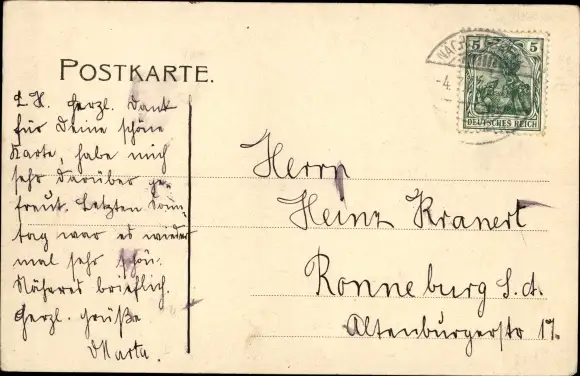 POSTKARTE.
L. H. Herzl. Dank
für Deine schöne
Karte, habe mich
sehr darüber ge-
freut. Letzten Sonn-
tag war es wieder
mal sehr schön.
Näheres brieflich.
Herzl. Grüße
Marta.
5 5
DEUTSCHES REICH
Herrn
Heinz Kranert
Ronneburg S. A.
Altenburgerstr 17.